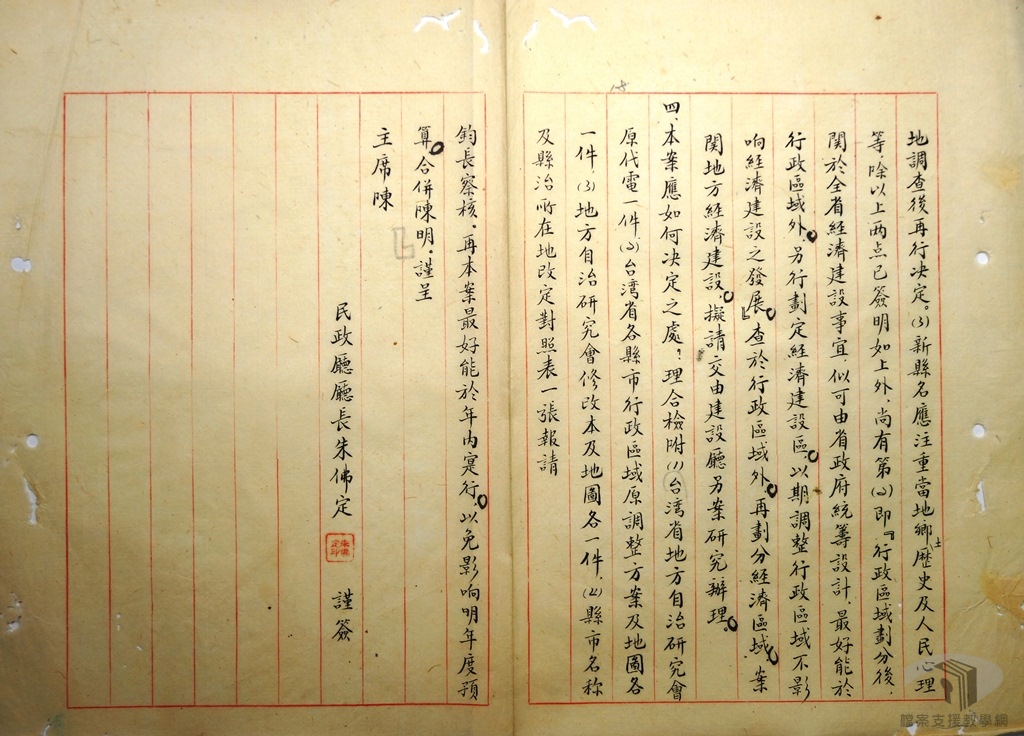 地調查後再行決定。(3)新縣名應注重當地鄉土歷史及人民心理
等,除以上两点已簽明如上外,尚有第(2)即『行政區域劃分後,
関於全省經濟建設事宜,似可由省政府統籌設計,最好能於
行政區域外,另行劃定經濟建設區,以期調整行政區域不影
响經濟建設之發展』查於行政區域外,再劃分經濟區域,案
関地方經濟建設,擬請交由建設廳另案研究辦理。
四、本案應如何决定之處?理合檢附(1)台湾省地方自治研究會
原代電一件,(2)台湾省各縣市行政區域原調整方案及地圖各
一件,(3)地方自治研究會修改本及地圖各一件,(4)縣市名称
及縣治所在地改定對照表一張報請
鈞長察核,再本案最好能於年内实行,以免影响明年度預
算,合併陳明。謹呈
主席陳
民政廳廳長朱佛定 謹簽
檔案支援教學網